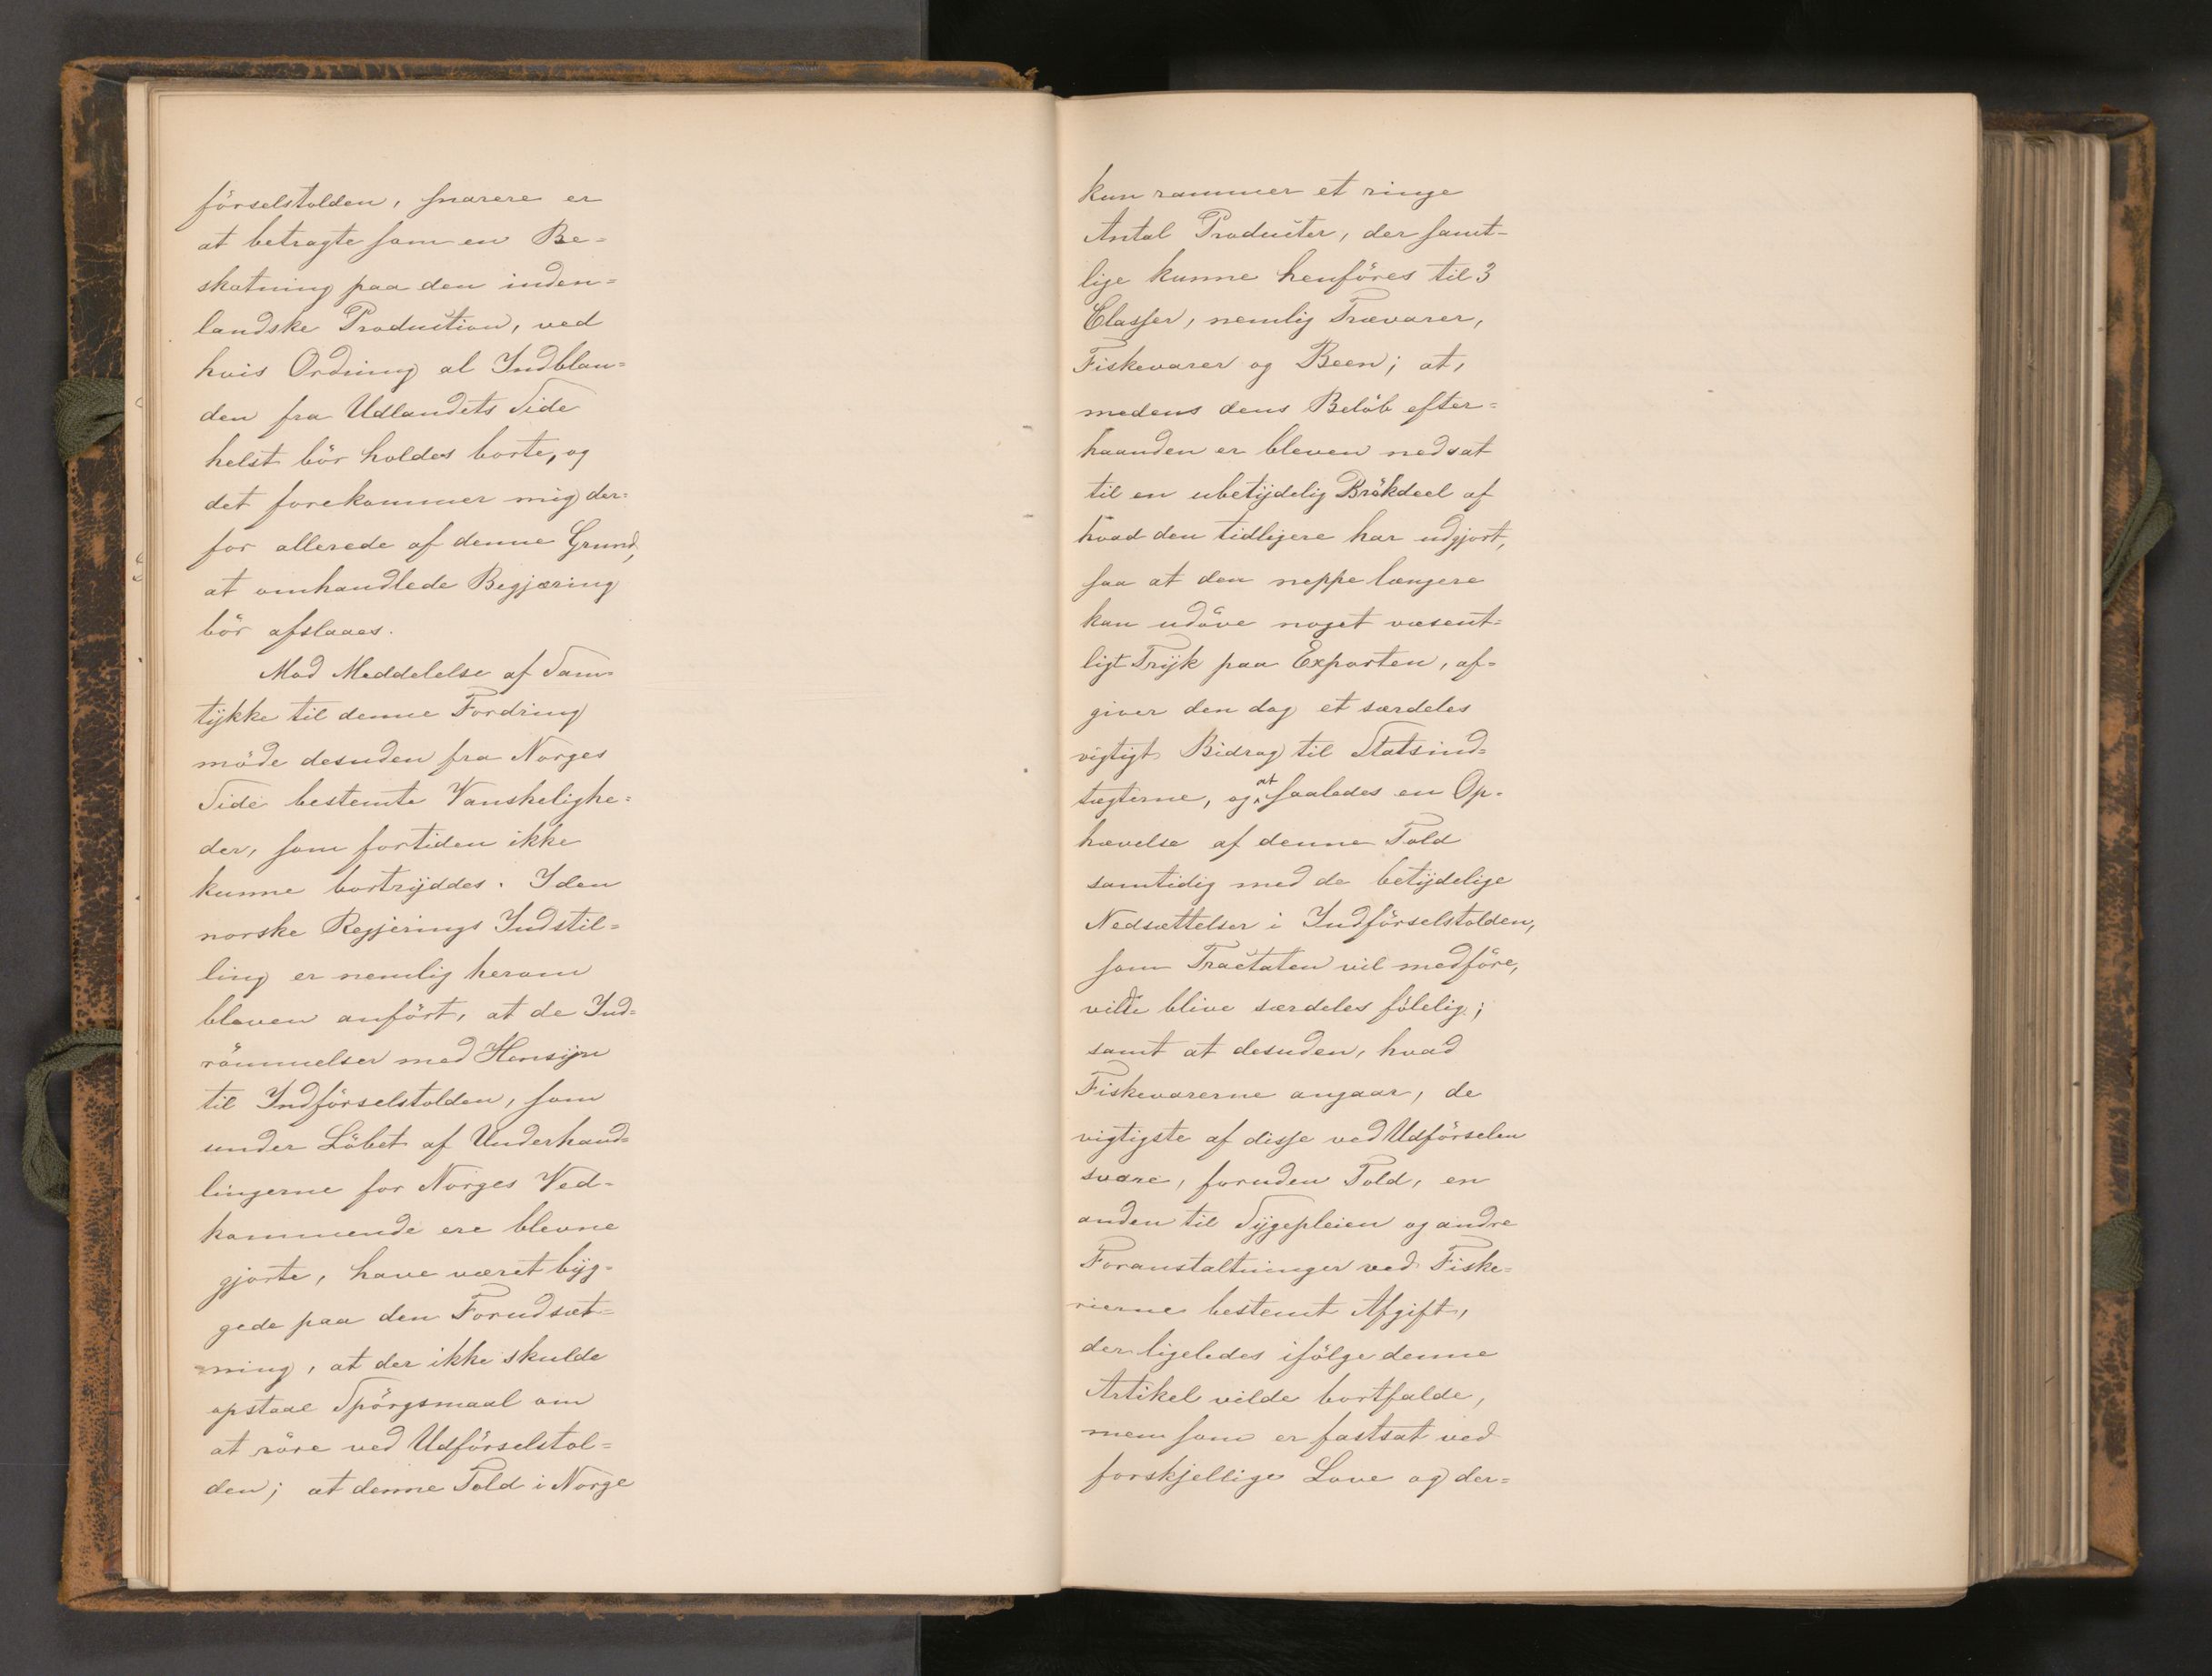 förselstolden, snarere er
at betragte som en Be=
skatning paa den inden=
landske Production, ved
hvis Ordning al Indblan=
den fra Udlandets Side
helst bör holdes borte, og
det forekommer mig der=
for allerede af denne Grund,
at omhandlede Begjæring
bör afslaaes.
Mod Meddelelse af Sam=
tÿkke til denne Fordring
möde desuden fra Norges
Side bestemte Vanskelighe=
der, som fortiden ikke
kunne bortrÿddes. I den
norske Regjerings Indstil=
ling er nemlig herom
bleven anfört, at de Ind=
römmelser med Hensÿn
til Indförselstolden, som
under Löbet af Underhand=
lingerne for Norges Ved=
kommende ere blevne
gjorte, have været bÿg=
gede paa den Forudsæt=
=ning, at der ikke skulde
opstaae Spörgsmaal om
at röre ved Udförselstol=
den; at denne Told i Norge
kun rammer et ringe
Antal Producter, der samt=
lige kunne henföres til 3
Classer, nemlig Trævarer,
Fiskevarer og Been; at,
medens dens Belöb efter=
haanden er bleven nedsat
til en ubetÿdelig Brökdeel af
hvad den tidligere har udgjort,
saa at den neppe længere
kan udöve noget væsent=
ligt Trÿk paa Exporten, af=
giver den dog et særdeles
vigtigt Bidrag til Statsind=
tægterne, og at saaledes en Op=
hævelse af denne Told
samtidig med de betÿdelige
Nedsættelser i Indförselstolden,
som Tractaten vil medföre,
vilde blive særdeles fölelig;
samt at desuden, hvad
Fiskevarerne angaar, de
vigtigste af disse ved Udförselen
svare, foruden Told, en
anden til Sÿgepleien og andre
Foranstaltninger ved Fiske=
rierne bestemt Afgift,
der ligeledes ifölge denne
Artikel vilde bortfalde,
men som er fastsat ved
forskjellige Love og der=